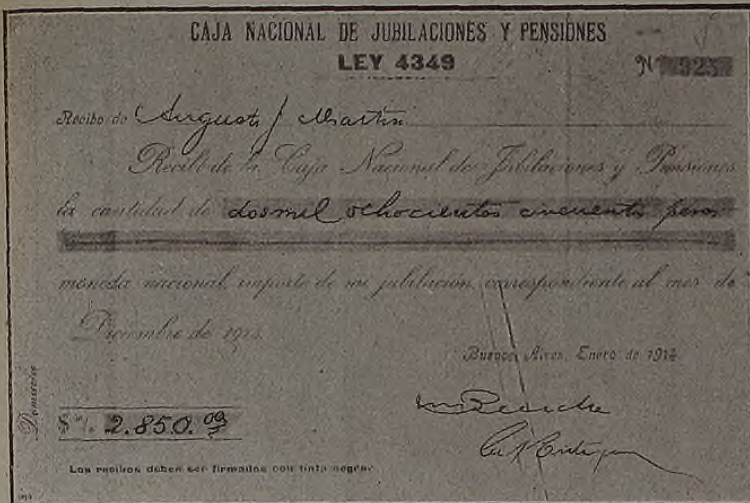 CAJA NACIONAL DE JUBILACIONES Y PENSIONES
LEY 4349
Nº 325
Recibo de Augusto J Martin
Recibí de la Caja Nacional de Jubilaciones y Pensiones
la cantidad de dos mil ochocientos cincuenta pesos
moneda nacional importe de mi jubilación correspondiente al mes de
Diciembre de 1913.
Buenos Aires, Enero de 1914
Domicilio
$ % 2.850.00
Los recibos deben ser firmados con tinta negra.